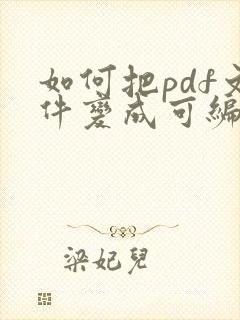 如何把pdf文
件變成可編
梁妃兒